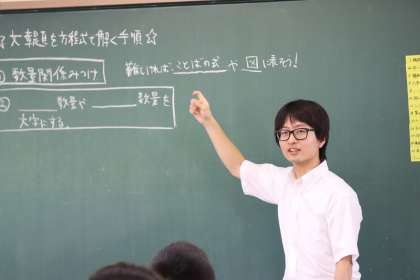 ☆文章題を方程式で解く手順☆
① 数量関係みつけ
難しければ、ことばの式や図に表そう！
② ＿＿＿数量や＿＿＿数量を
文字にする。